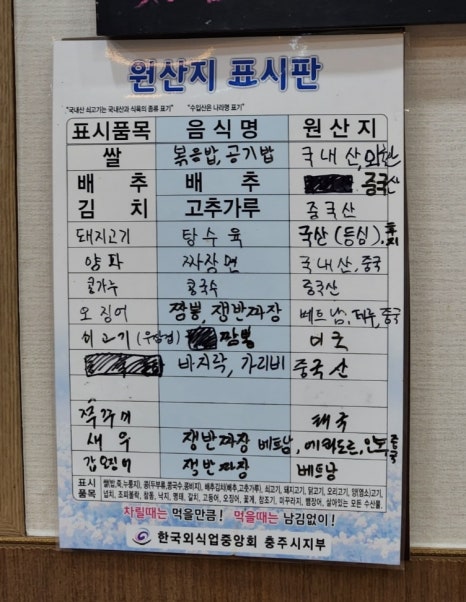 원산지 표시판
"국내산 쇠고기는 국내산과 식육의 종류 표기" "수입산은 나라명 표기"
표시품목 음식명 원산지
쌀 볶음밥, 공기밥 국내산,
배추 배추 중국산
김치 고추가루 중국산
돼지고기 탕수육 국산(등심).
양파 짜장면 국내산, 중국
콩가루 콩국수 중국산
오징어 짬뽕, 쟁반짜장 베트남, 페루, 중국
짬뽕 미국
바지락, 가리비 중국산
쭈꾸미 태국
새우 쟁반짜장 베트남, 에콰도르, 중국
갑오징어 쟁반짜장 베트남
표시 쌀(밥,죽,누룽지), 콩(두부류,콩국수,콩비지), 배추김치(배추,고춧가루), 쇠고기, 돼지고기, 닭고기, 오리고기, 양(염소)고기,
품목 넙치, 조피볼락, 참돔, 낙지, 명태, 갈치, 고등어, 오징어, 꽃게, 참조기, 미꾸라지, 뱀장어, 살아있는 모든 수산물.
차릴때는 먹을만큼! 먹을때는 남김없이!
한국외식업중앙회 충주시지부